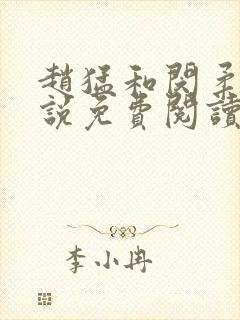 趙猛和閔柔
說免費閱讀
李小冉